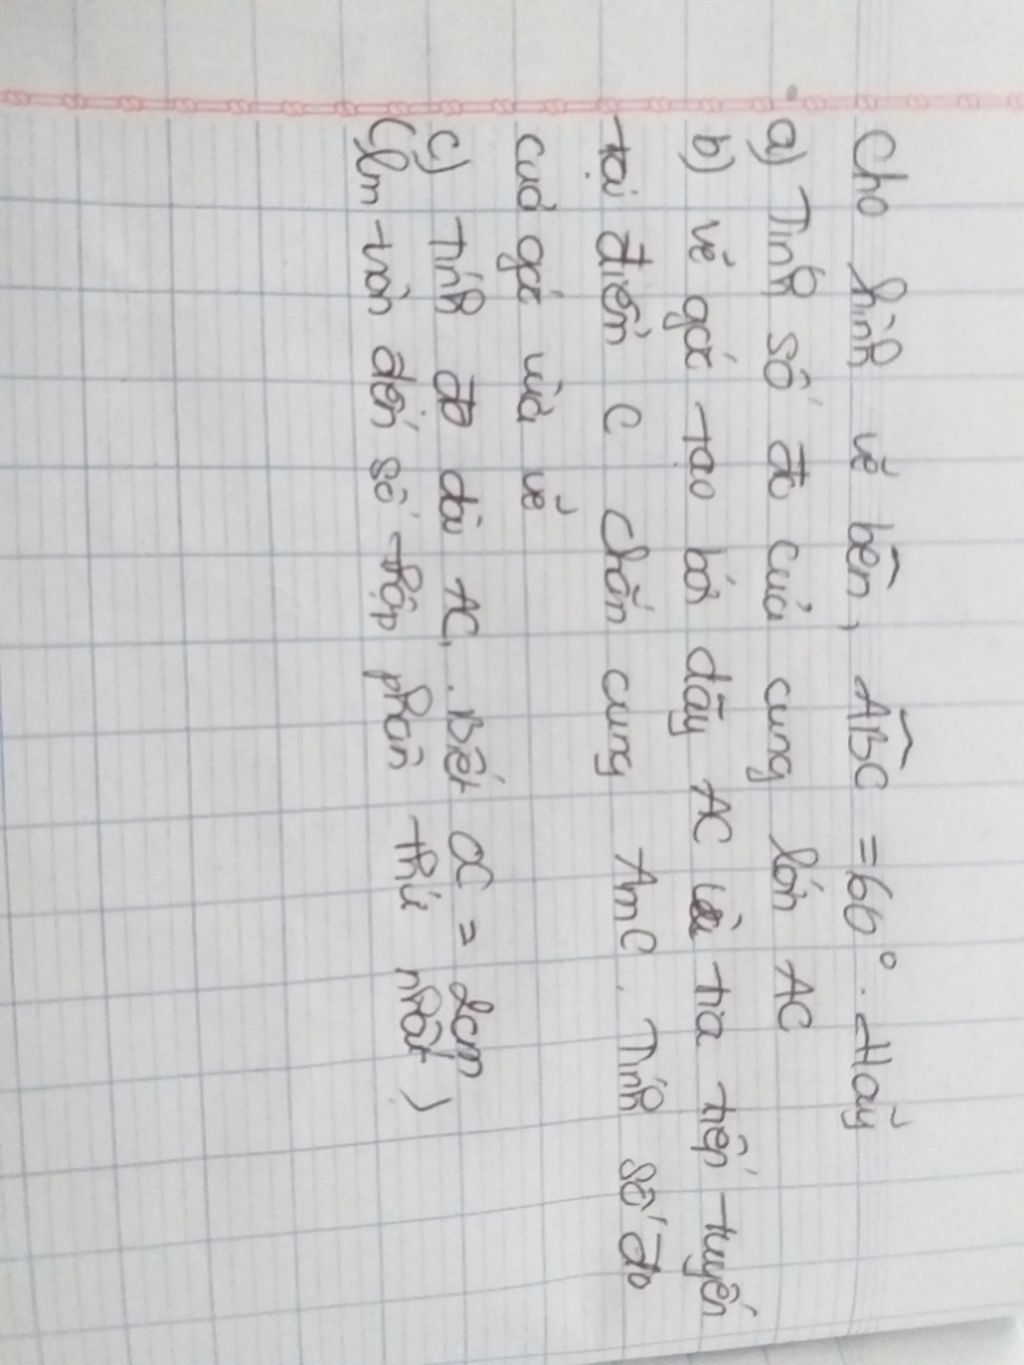 Cho hình vẽ bên, ABC = 60°. Hãy
a) Tính số đo của cung lớn AC
b) vẽ góc tạo bởi dây AC và tia tiếp tuyến
tại điểm C chắn cung AmC. Tính số đo
của góc vừa vẽ
c) Tính độ dài AC. Biết OC = 2cm
(làm tròn đến số thập phân thứ nhất)